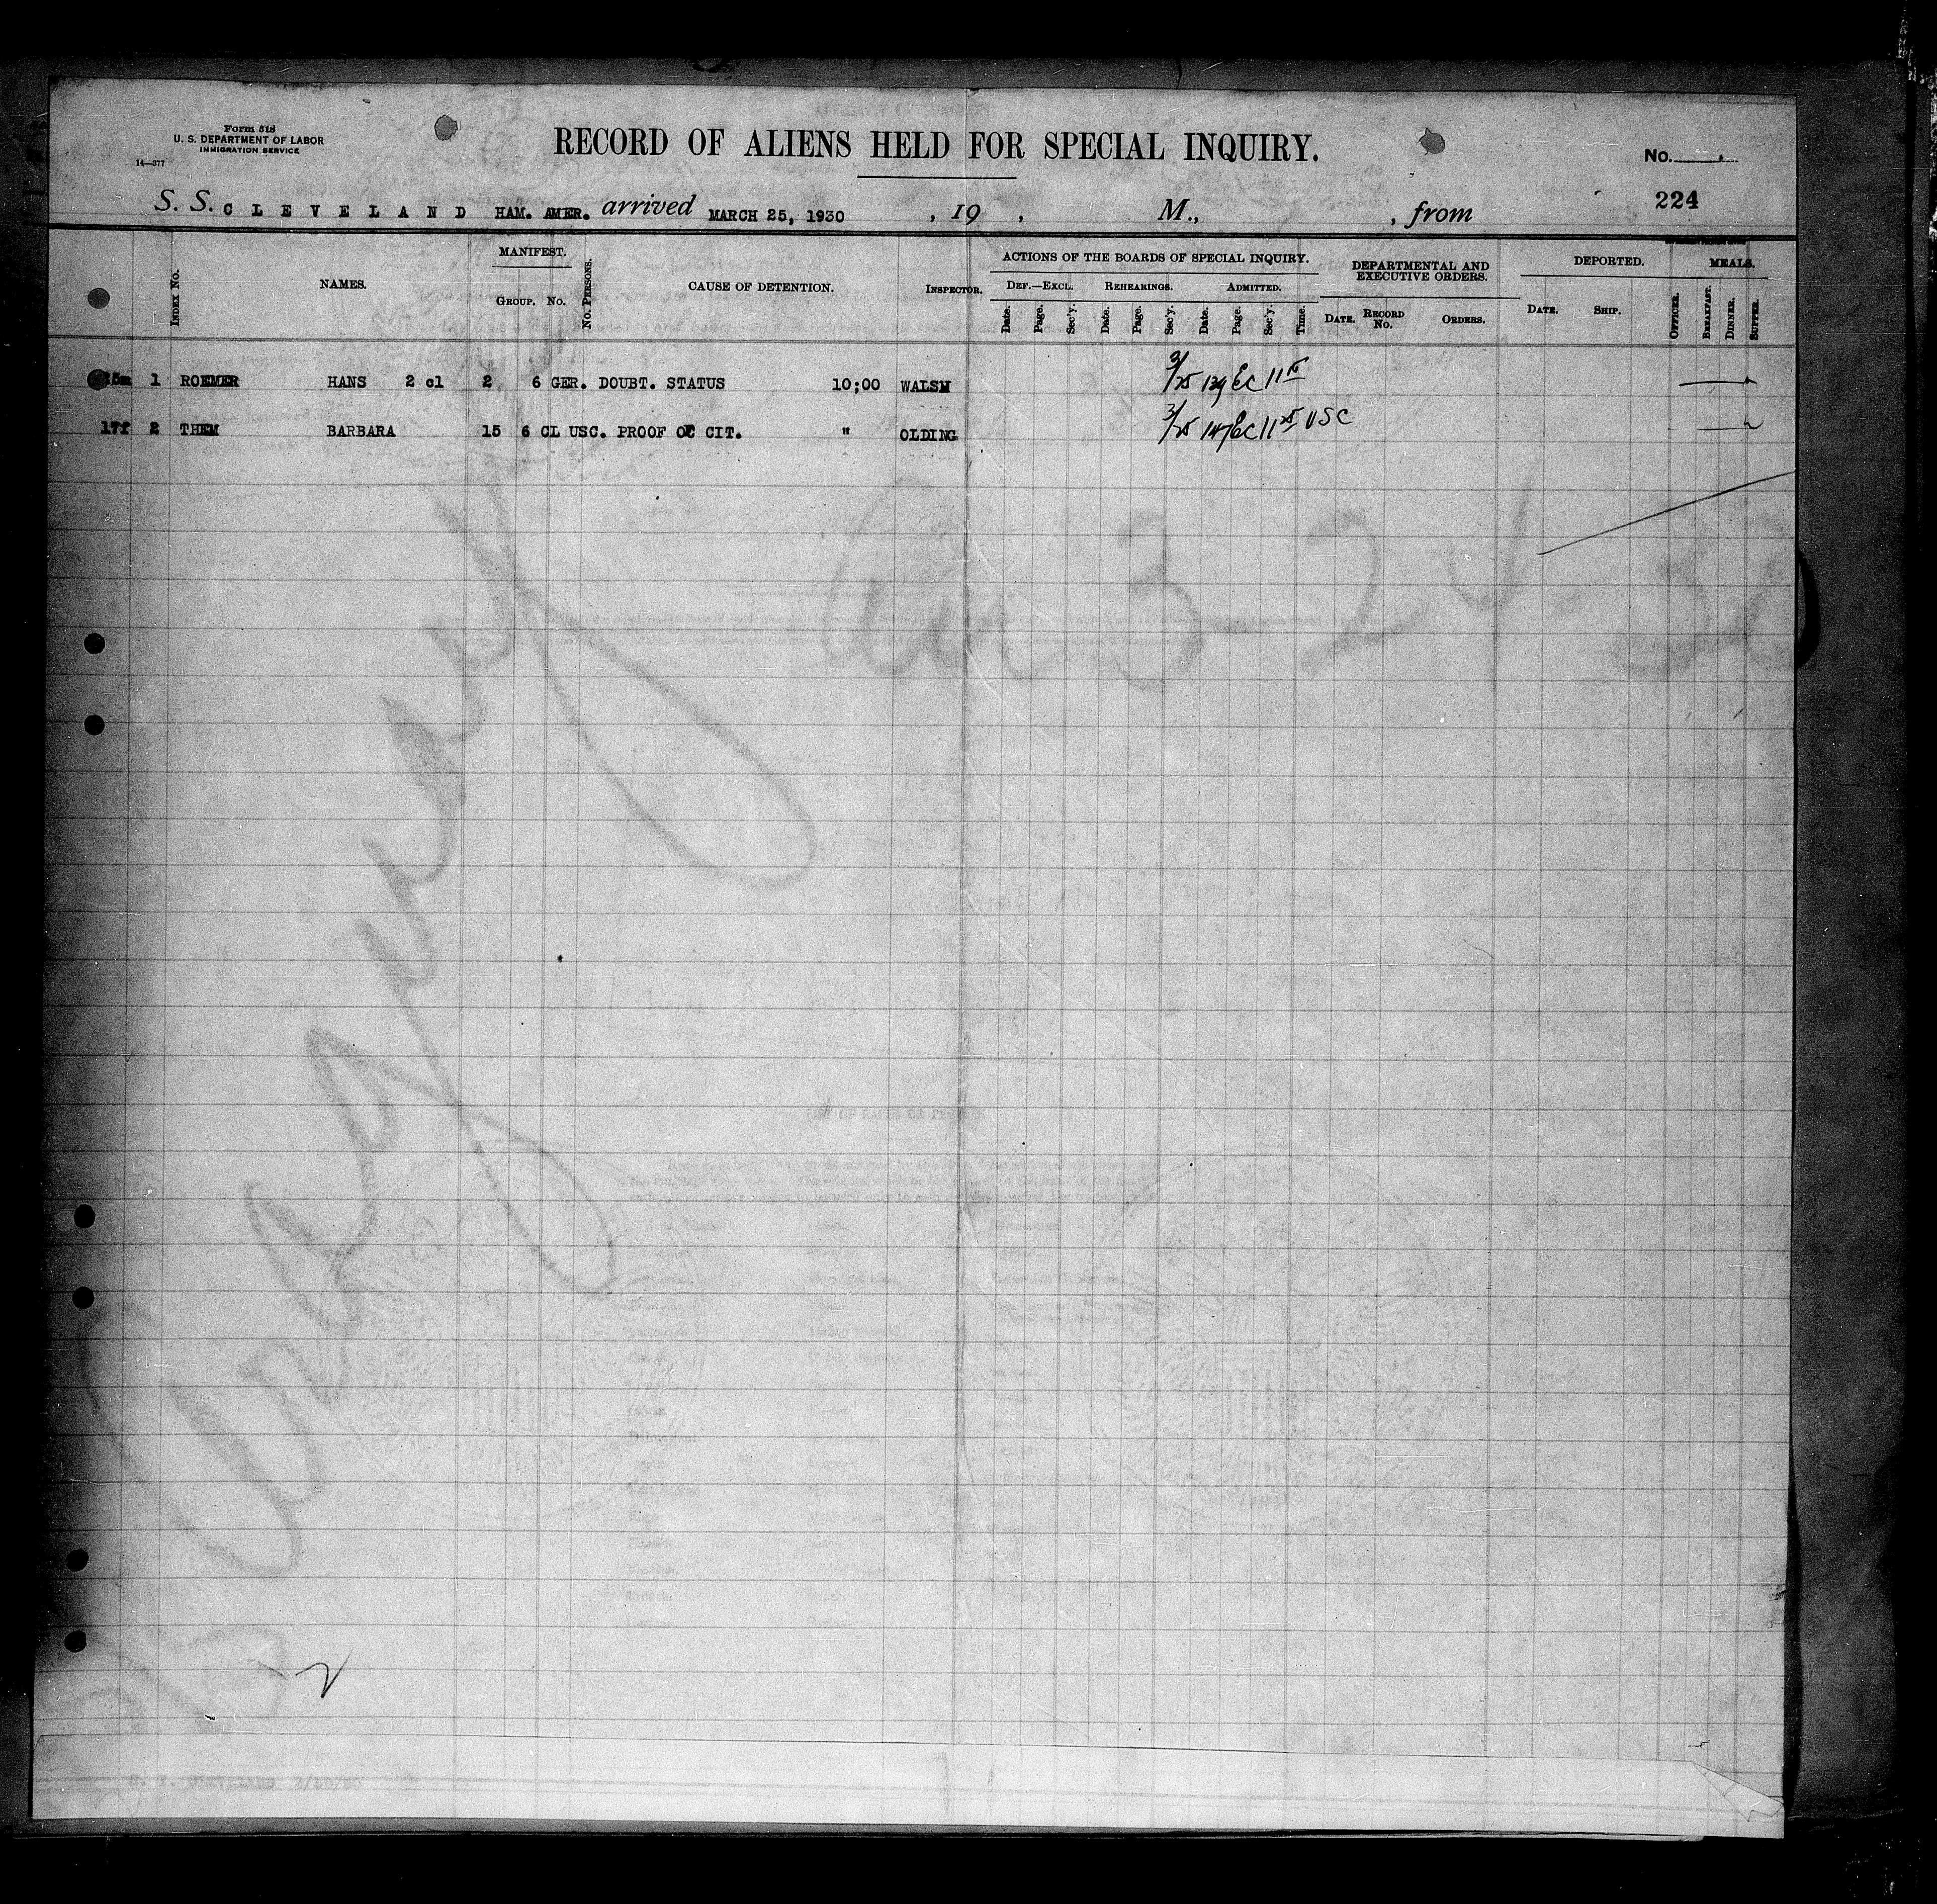 Form 518
U. S. DEPARTMENT OF LABOR
IMMIGRATION SERVICE
14—377
RECORD OF ALIENS HELD FOR SPECIAL INQUIRY.
No.
224
S. S. CLEVELAND HAM. AMER. arrived MARCH 25, 1930 , 19 , M., , from
INDEX No. NAMES. MANIFEST. GROUP. No. No. PERSONS. CAUSE OF DETENTION. INSPECTOR. ACTIONS OF THE BOARDS OF SPECIAL INQUIRY. DEPARTMENTAL AND EXECUTIVE ORDERS. DEPORTED. MEALS.
DEF.—EXCL. REHEARINGS. ADMITTED.
Date. Page. Sec'y. Date. Page. Sec'y. Date. Page. Sec'y. Time. DATE. RECORD No. ORDERS. DATE. SHIP. OFFICER. BREAKFAST. DINNER. SUPPER.
1 ROEMER HANS 2 cl 2 6 GER. DOUBT. STATUS 10;00 WALSH 3/25 129 EC 11
17f 2 THEM BARBARA 15 6 CL USC. PROOF OF CIT. " OLDING 3/25 147 EC 11 25 USC